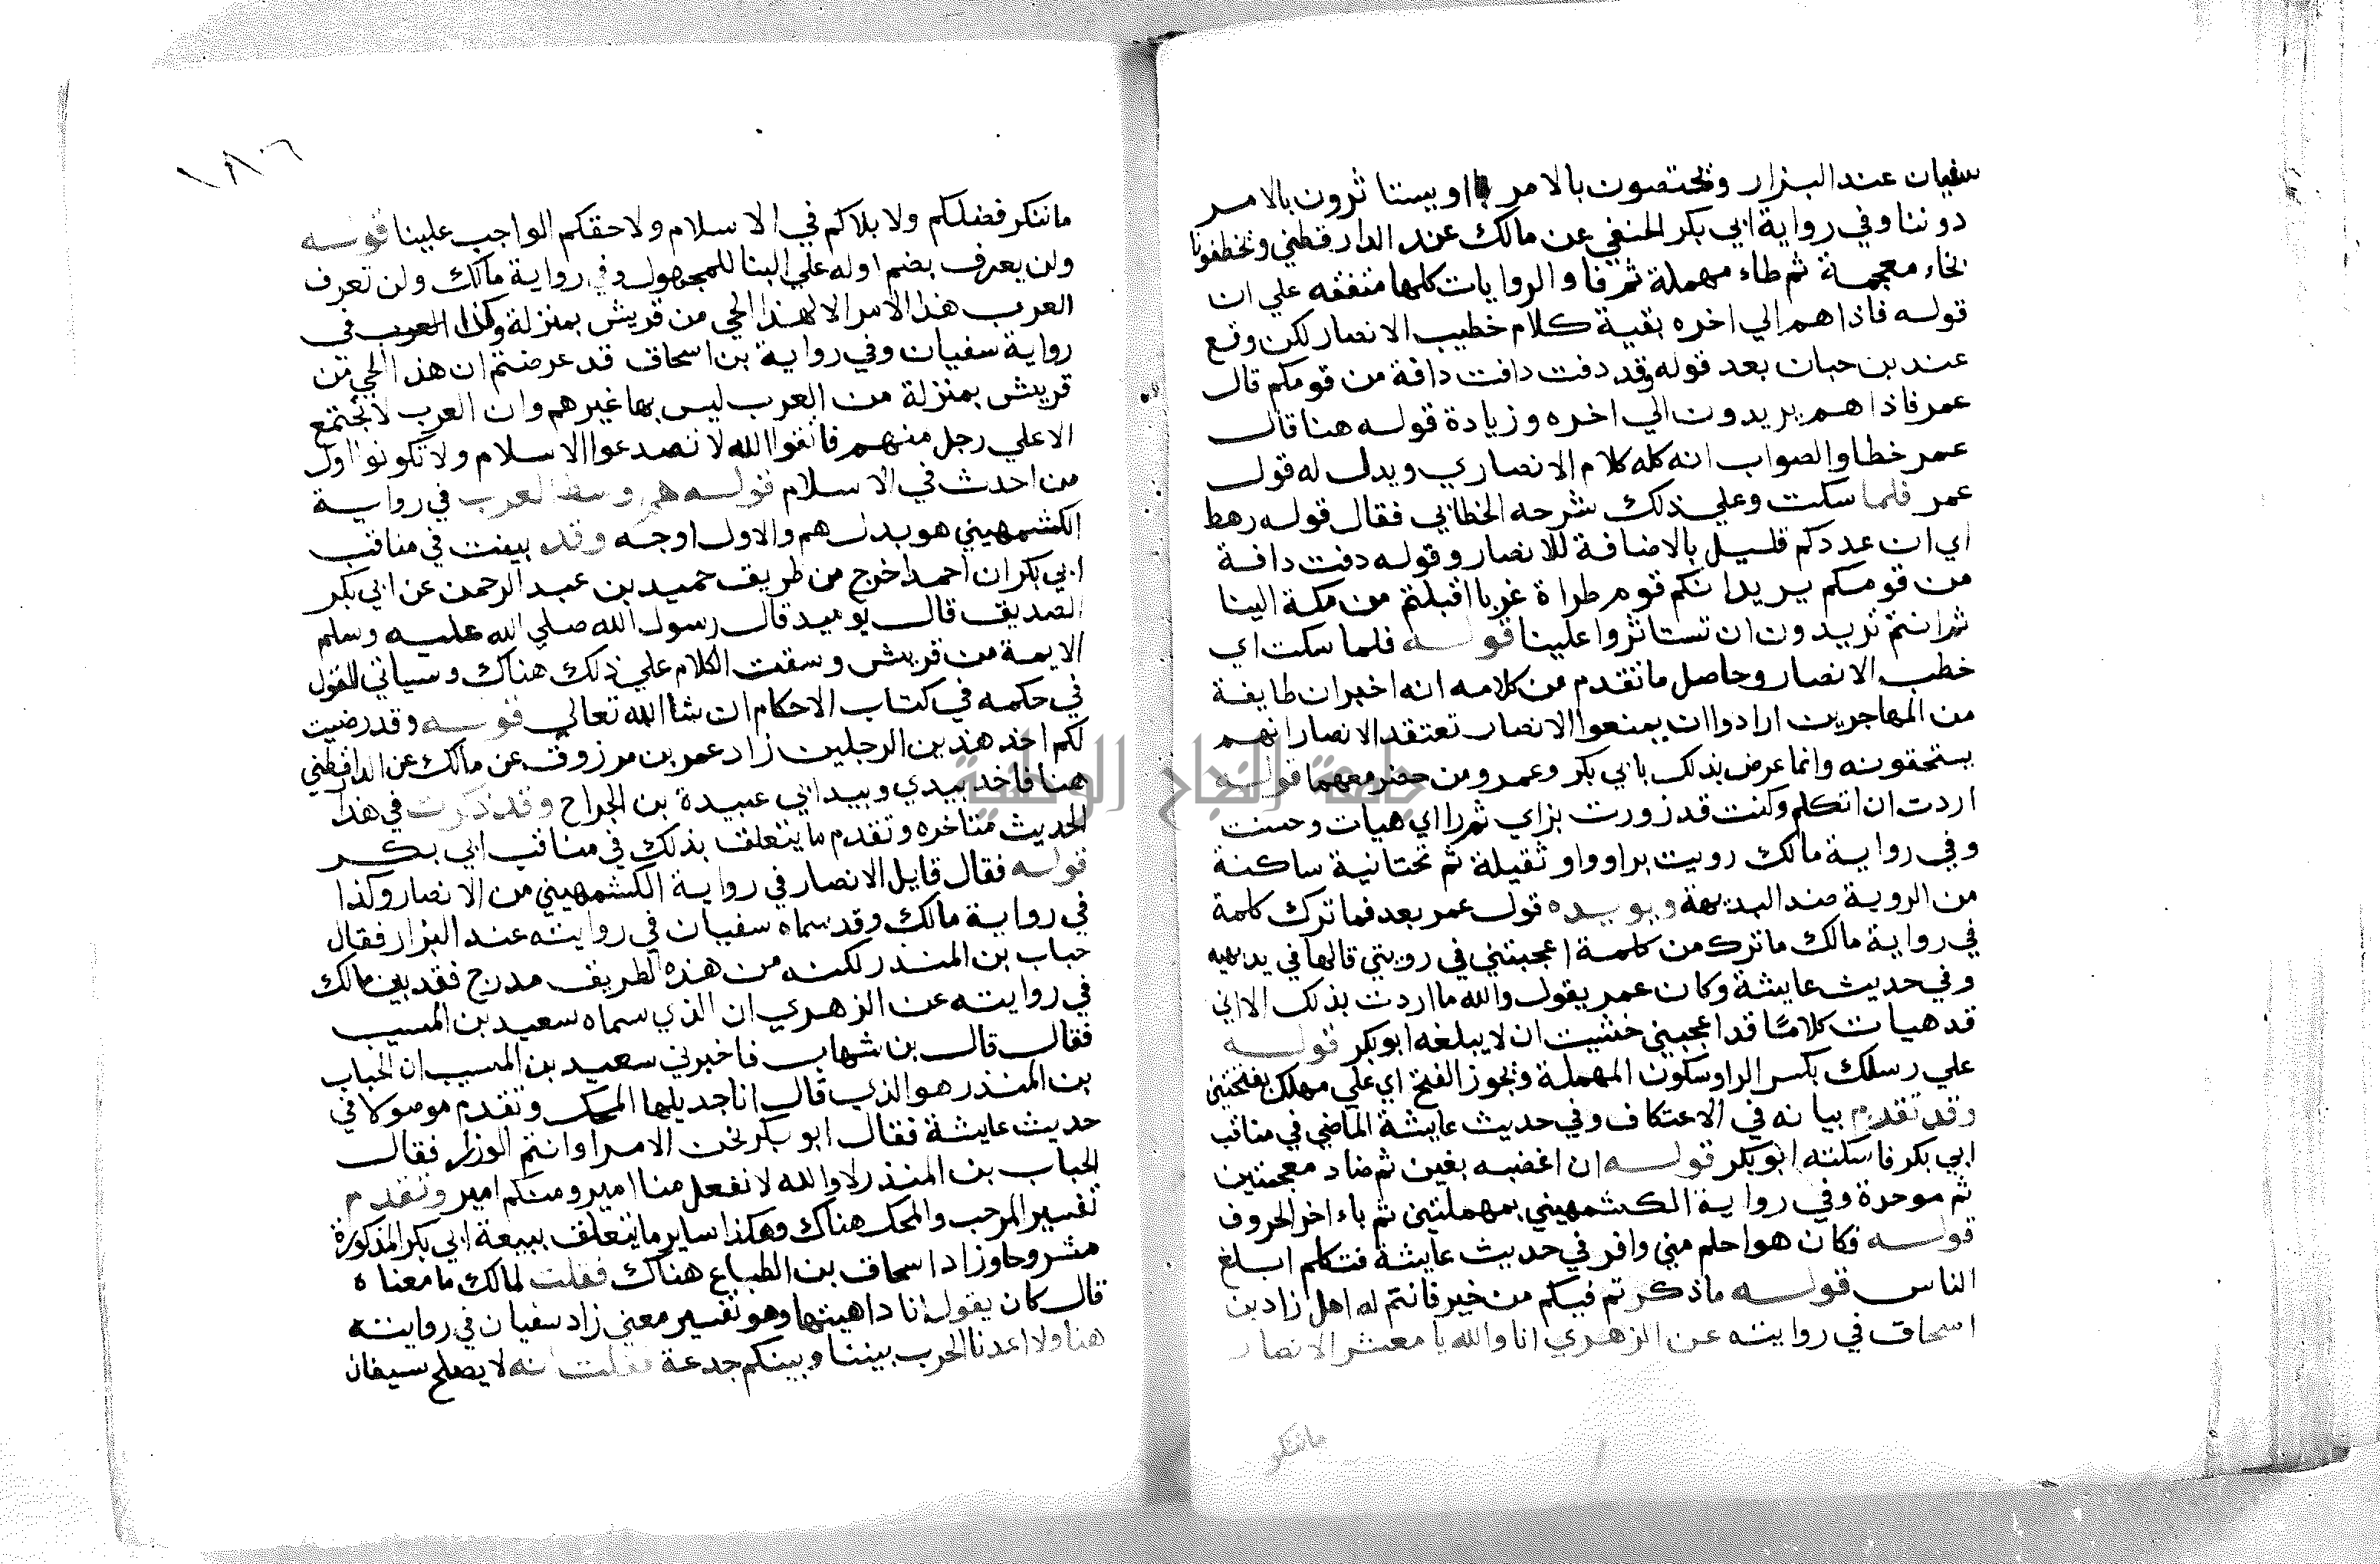 سفيان عند البزار وتختصون بالامر او يستاثرون بالامر
دوننا وفي رواية ابي بكر الحنفي عن مالك عند الدارقطني وتخطفونا
بخاء معجمة ثم طاء مهملة ثم فا والروايات كلها متفقه علي ان
قوله فاذا هم الي اخره بقية كلام خطيب الانصار لكن وقع
عند بن حبان بعد قوله وقد دفت دافت دافة من قومكم قال
عمر فاذا هم يريدون الي اخره وزيادة قوله هنا قال
عمر خطا والصواب انه كله كلام الانصاري ويدل له قول
عمر فلما سكت وعلي ذلك شرحه الخطابي فقال قوله رهط
اي ان عددكم قليل بالاضافة للانصار وقوله دفت دافة
من قومكم يريد انكم قوم طراة غربا اقبلتم من مكة الينا
ثم انتم تريدون ان تستاثروا علينا قوله فلما سكت اي
خطب الانصار وحاصل ما تقدم من كلامه انه اخبر ان طايفة
من المهاجرين ارادوا ان يمنعوا الانصار تعتقد الانصار انهم
يستحقونه وانما عرض بذلك بابي بكر وعمر ومن حضر معهما قوله
اردت ان اتكلم وكنت قد زورت بزاي ثم را اي هيات وحسنت
وفي رواية مالك رويت براو واو ثقيلة ثم تحتانية ساكنة
من الروية ضد البديهة ويويده قول عمر بعد فما ترك كلمة
في رواية مالك ما ترك من كلمة اعجبتني في رويتي قالها في بديهيه
وفي حديث عايشة وكان عمر يقول والله ما اردت بذلك الا اني
قد هيات كلامًا قد اعجبني خشيت ان لا يبلغه ابو بكر قوله
علي رسلك بكسر الرا وسكون المهملة ويجوز الفتح اي علي مهلك بفتحتين
وقد تقدم بيانه في الاعتكاف وفي حديث عايشة الماضي في مناقب
ابي بكر فاسكته ابو بكر قوله ان اغضبه بغين ثم ضاد معجمتين
ثم موحدة وفي رواية الكشمهيني بمهملتين ثم ياء اخر الحروف
قوله فكان هو احلم مني واوقر في حديث عايشة فتكلم ابلغ
الناس قوله ما ذكرتم فيكم من خير فانتم له اهل زاد بن
اسحاق في روايته عن الزهري انا والله يا معشر الانصار
ماننكر
١٨٦
ماننكر فضلكم ولا بلاكم في الاسلام ولا حقكم الواجب علينا قوله
ولن يعرف بضم اوله علي البنا للمجهول وفي رواية مالك ولن تعرف
العرب هذا الامر الا لهذا الحي من قريش بمنزلة وكذا العرب في
رواية سفيان وفي رواية بن اسحاق قد عرضتم ان هذا الحي من
قريش بمنزلة من العرب ليس بها غيرهم وان العرب لا تجتمع
الا علي رجل منهم فاتقوا الله لا تصدعوا الاسلام ولا تكونوا اول
من احدث في الاسلام قوله هم وسط العرب في رواية
الكشمهيني هو بدل هم والاول اوجه وقد بينت في مناقب
ابي بكر ان احمد اخرج من طريق حميد بن عبد الرحمن عن ابي بكر
الصديق قال يوميد قال رسول الله صلي الله عليه وسلم
الايمة من قريش وسقت الكلام علي ذلك هناك وسياتي القول
في حكمه في كتاب الاحكام ان شا الله تعالي قوله وقد رضيت
لكم احد هذين الرجلين زاد عمر بن مرزوق عن مالك عن الدارقطني
هنا فاخد بيدي وبيد ابي عبيدة بن الجراح وقد ذكرت في هذا
الحديث متاخره وتقدم ما يتعلق بذلك في مناقب ابي بكر
قوله فقال قايل الانصار في رواية الكشمهيني من الانصار وكذا
في رواية مالك وقد سماه سفيان في روايته عند البزار فقال
حباب بن المنذر لكنه من هذه الطريق مدرج فقد بين مالك
في روايته عن الزهري ان الذي سماه سعيد بن المسيب
فقال قال بن شهاب فاخبرني سعيد بن المسيب ان الحباب
بن المنذر هو الذي قال انا جديلها المحكك وتقدم موصولا في
حديث عايشة فقال ابو بكر نحن الامرا وانتم الوزراء فقال
الحباب بن المنذر لا والله لا نفعل منا امير ومنكم امير وتقدم
تفسير المرحب والمحكك هناك وهكذا ساير ما يتعلق ببيعة ابي بكر المذكورة
مشروحا وزاد اسحاق بن الطباع هناك فقلت لمالك ما معناه
قال كان يقول انا داهيتها وهو تفسير معني زاد سفيان في روايته
هنا ولا اعدنا الحرب بيننا وبينكم جدعة فقلت انه لا يصلح سيفان